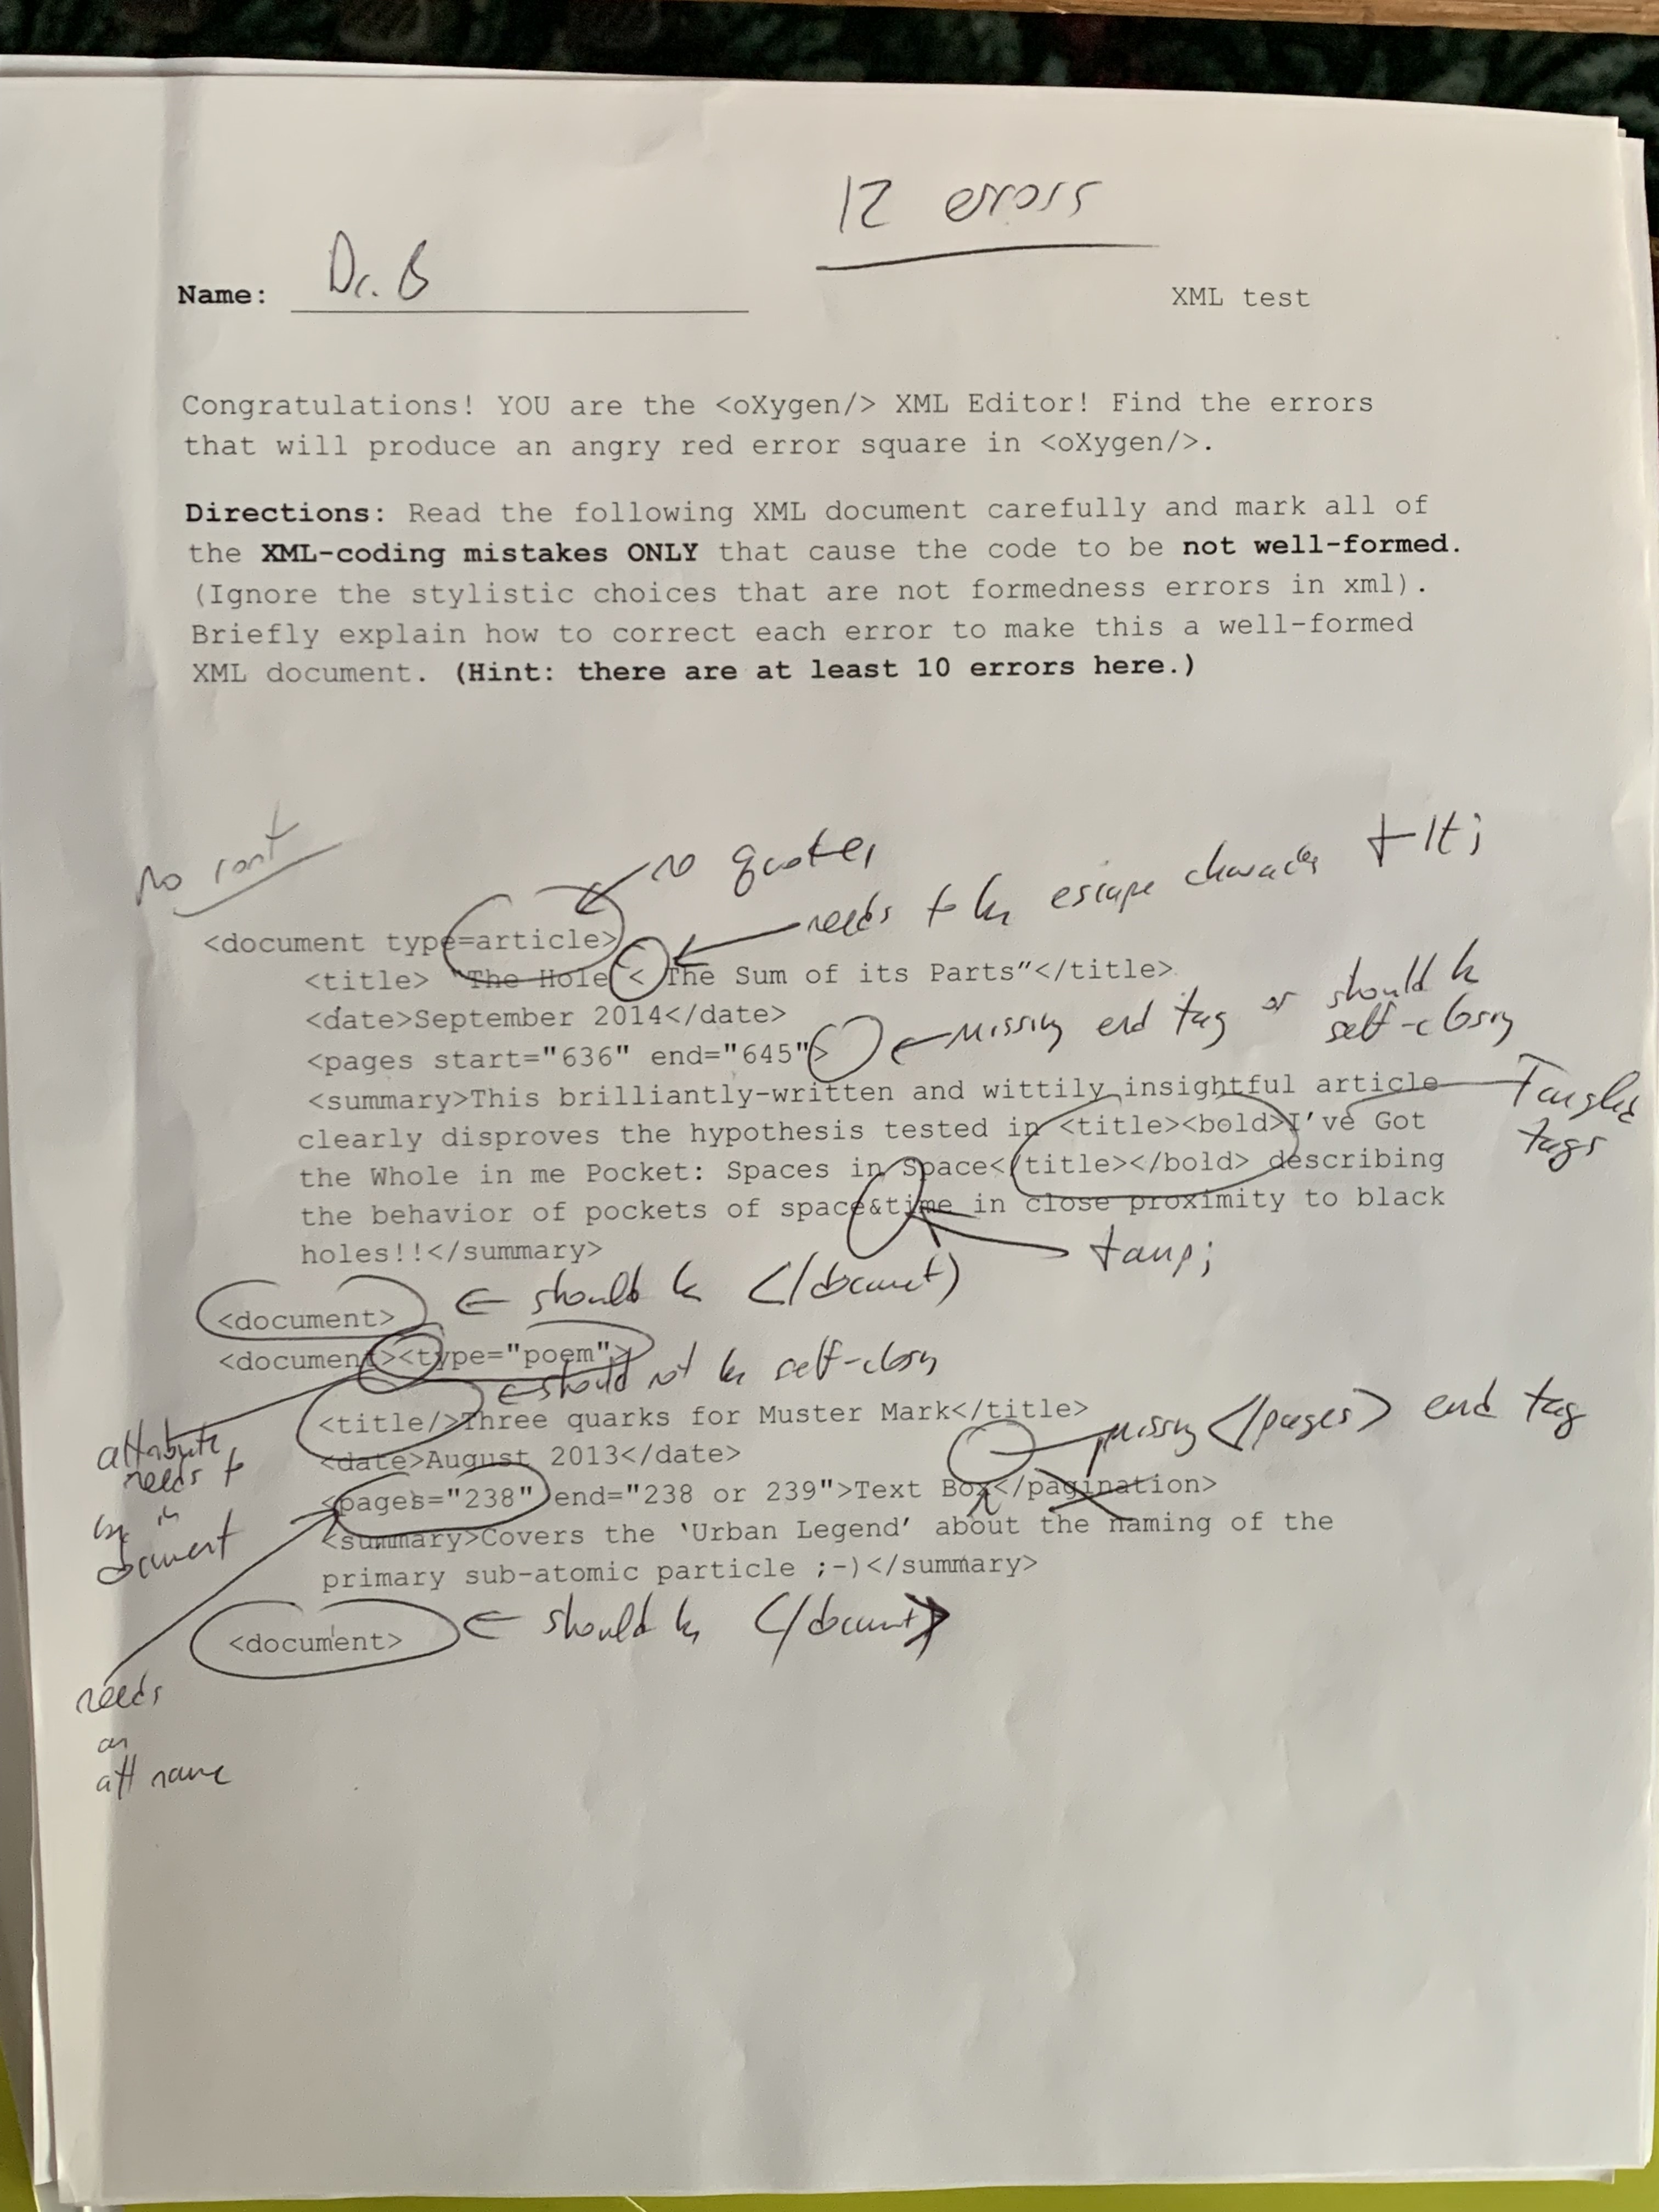 12 errors
Name: Dr. B
XML test
Congratulations! YOU are the <oXygen/> XML Editor! Find the errors
that will produce an angry red error square in <oXygen/>.
Directions: Read the following XML document carefully and mark all of
the XML-coding mistakes ONLY that cause the code to be not well-formed.
(Ignore the stylistic choices that are not formedness errors in xml).
Briefly explain how to correct each error to make this a well-formed
XML document. (Hint: there are at least 10 errors here.)
No root
no quotes
needs to be escape character &lt;
<document type=article>
<title> "The Hole < The Sum of its Parts"</title>
<date>September 2014</date>
missing end tag or should be
self-closing
<pages start="636" end="645">
<summary>This brilliantly-written and wittily insightful article
Tangled
tags
clearly disproves the hypothesis tested in <title><bold>I've Got
the Whole in me Pocket: Spaces in Space</title></bold> describing
the behavior of pockets of space&time in close proximity to black
holes!!</summary>
&amp;
<document>
should be </document>
<document><type="poem">
should not be self-closing
attribute
needs to
be in
document
<title/>Three quarks for Muster Mark</title>
missing </pages> end tag
<date>August 2013</date>
<pages="238" end="238 or 239">Text Box</pagination>
<summary>Covers the 'Urban Legend' about the naming of the
primary sub-atomic particle ;-)</summary>
<document>
should be </document>
needs
an
att name